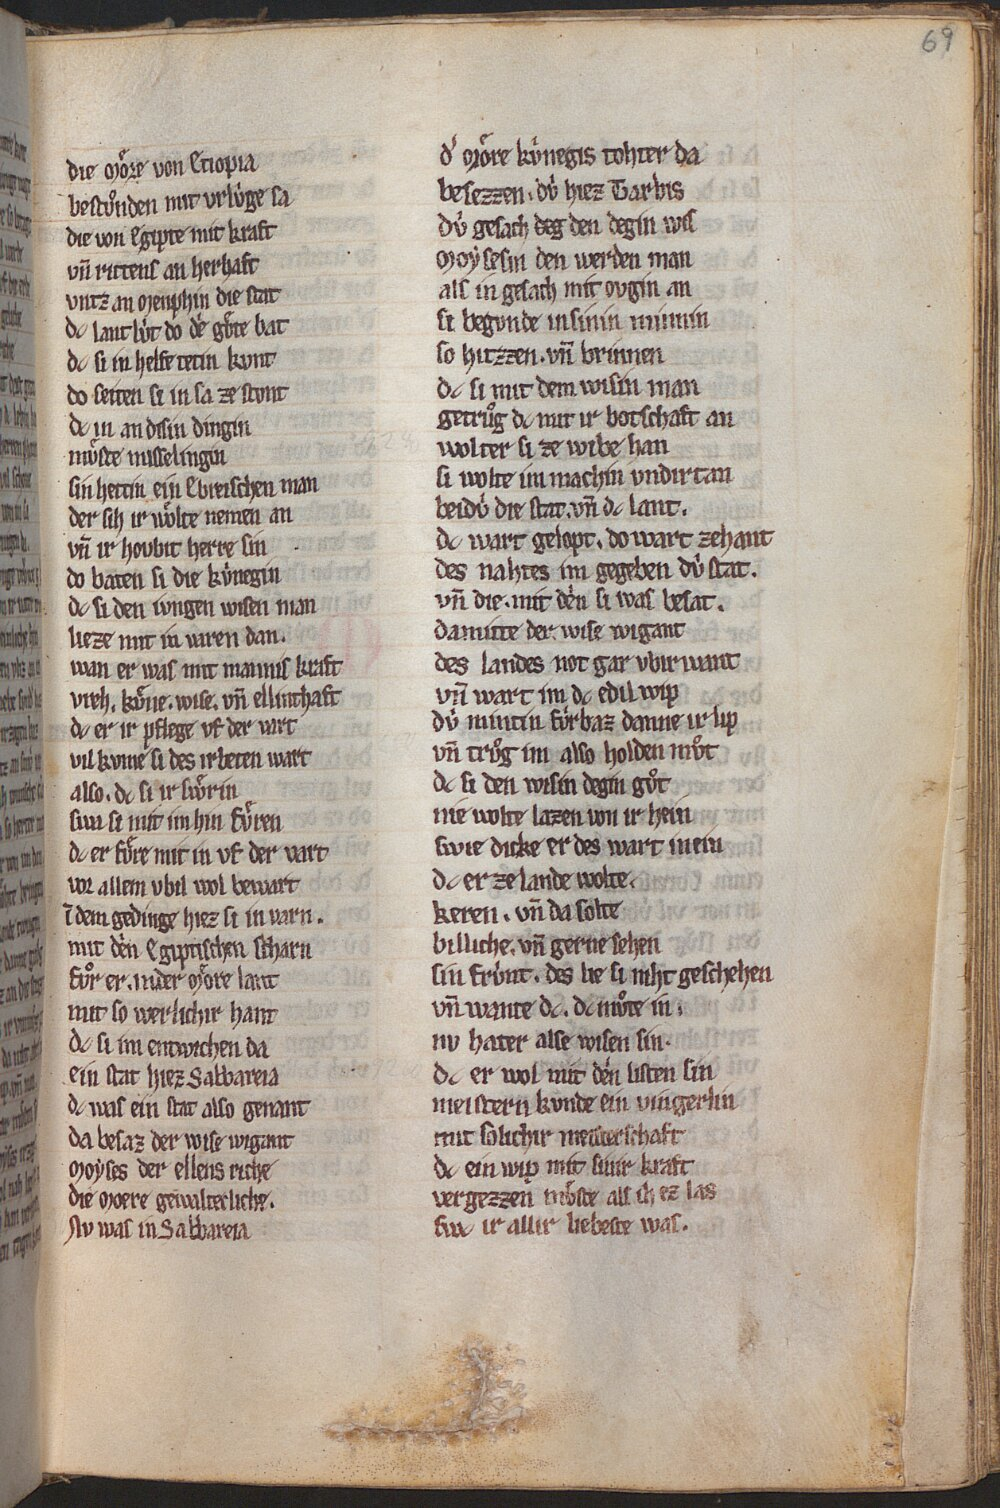 69
die Moͤre von Etiopia
bestuͦnden mit vrluͥge sa
die von Egipte mit kraft
vn̄ rittens an herhaft
vntz an Menphin die stat
dc lantluͥt do dͥe goͤte bat
dc si in helfe tetin kunt
do seiten si in sa ze stont
dc in an disin dingin
muͤste misselingin
sin hettin ein Ebreischen man
der sih ir woͤlte nemen an
vn̄ ir hovbit herre sin
do baten si die kuͥnegin
dc si den iungen wisen man
lieze mit in varen dan.
wan er was mit mannis kraft
vreh. kuͤne. wise. vn̄ ellinthaft
dc er ir pflege vf der vart
vil kvme si des irbeten wart
also. dc si ir swuͤrin
swn si mit im hin fuͤren
dc er fuͤre mit in vf der vart
vor allem vbil wol bewart
ī dem gedinge hiez si in varn.
mit dͥen Egiptischen scharn
fuͦr er. inder Moͤre lant
mit so werlichir hant
dc si im entwichen da
ein stat hiez Sabbareia
dc was ein stat also genant
da besaz der wise wigant
Moyses der ellens riche
die Moere gewalterliche.
Nv was in Sabbareia
dͥ Moͤre kuͥnegis tohter da
besezzen. duͥ hiez Tarbis
Duͥ gesach deg den degin wis
Moysesin den werden man
als in gesach mit ovgin an
si begonde in sinin minnin
so hitzzen. vn̄ brinnen
dc si mit dem wisin man
getruͦg dc mit ir botschaft an
wolter si ze wibe han
si wolte im machin vndirtan
beiduͥ die stat. vn̄ dc lant.
dc wart gelopt. do wart zehant
des nahtes im gegeben duͥ stat.
vn̄ die. mit dͥen si was besat.
damitte der wise wigant
des landes not gar vbirwant
vn̄ wart im dc edil wip
duͥ mintin fuͥrbaz danne ir lip
vn̄ truͦg im also holden muͦt
dc si den wisin degin guͦt
nie wolte lazen von ir hein
swie dicke er des wart inein
dc er ze lande wolte.
keren. vn̄ da solte
billiche. vn̄ gerne sehen
sin fruͥnt. des lie si niht geschehen
vn̄ wante dc. dc muͦte in.
nv hater alse wisen sin.
dc er wol mit dͥen listen sin
meistern kvnde ein vingerlin
mit solichir meisterschaft
dc ein wip mit sinir kraft
vergezzen muͤste als ih ez las
swc ir allir liebeste was.